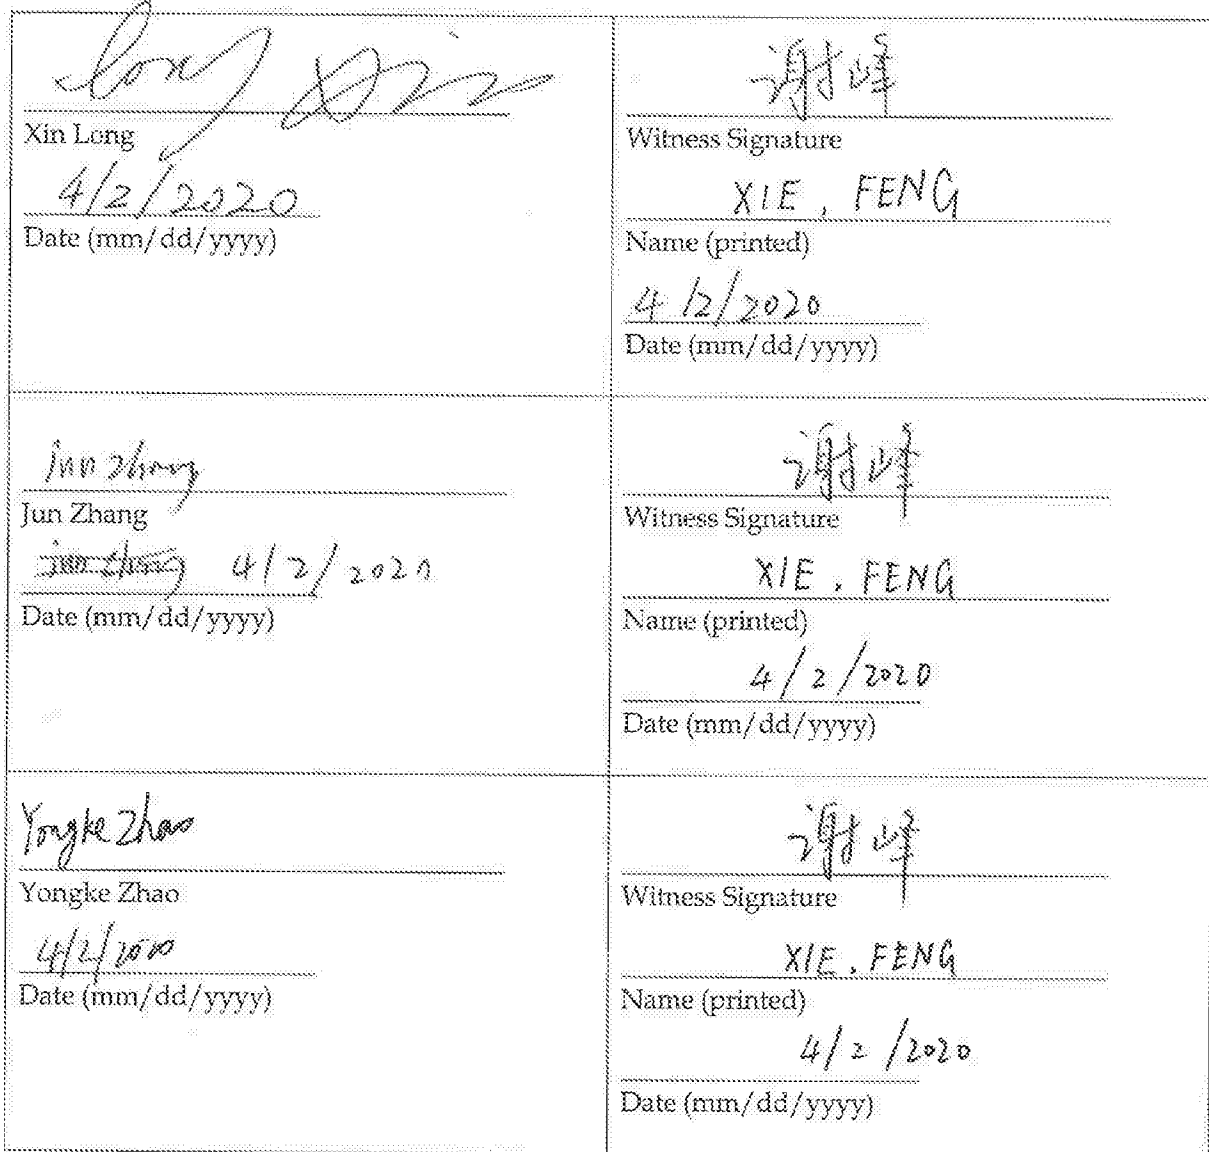 Long Xin
Xin Long
4/2/2020
Date (mm/dd/yyyy)
谢峰
Witness Signature
XIE, FENG
Name (printed)
4/2/2020
Date (mm/dd/yyyy)
jun zhang
Jun Zhang
jun zhang 4/2/2020
Date (mm/dd/yyyy)
谢峰
Witness Signature
XIE, FENG
Name (printed)
4/2/2020
Date (mm/dd/yyyy)
Yongke Zhao
Yongke Zhao
4/2/2020
Date (mm/dd/yyyy)
谢峰
Witness Signature
XIE, FENG
Name (printed)
4/2/2020
Date (mm/dd/yyyy)